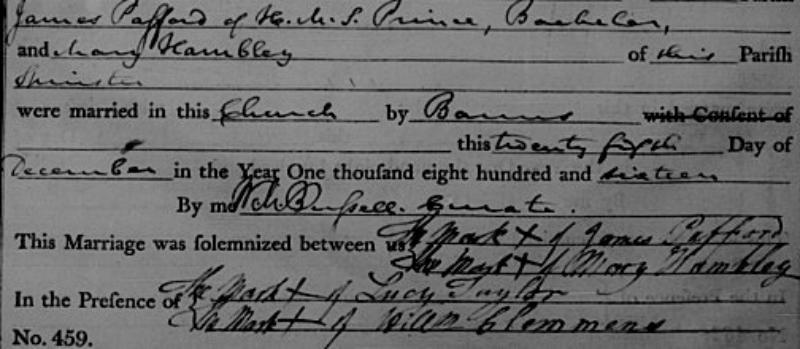 James Pafford of H.M.S. Prince, Bachelor,
and Mary Hambley of this Pariſh
Spinster
were married in this Church by Banns with Conſent of
this twenty fifth Day of
December in the Year One thouſand eight hundred and sixteen
By me Curate.
This Marriage was ſolemnized between us The Mark X of James Pafford
The Mark X of Mary Hambley
In the Preſence of The Mark X of Lucy Taylor
The Mark X of Willm Clemmens
No. 459.